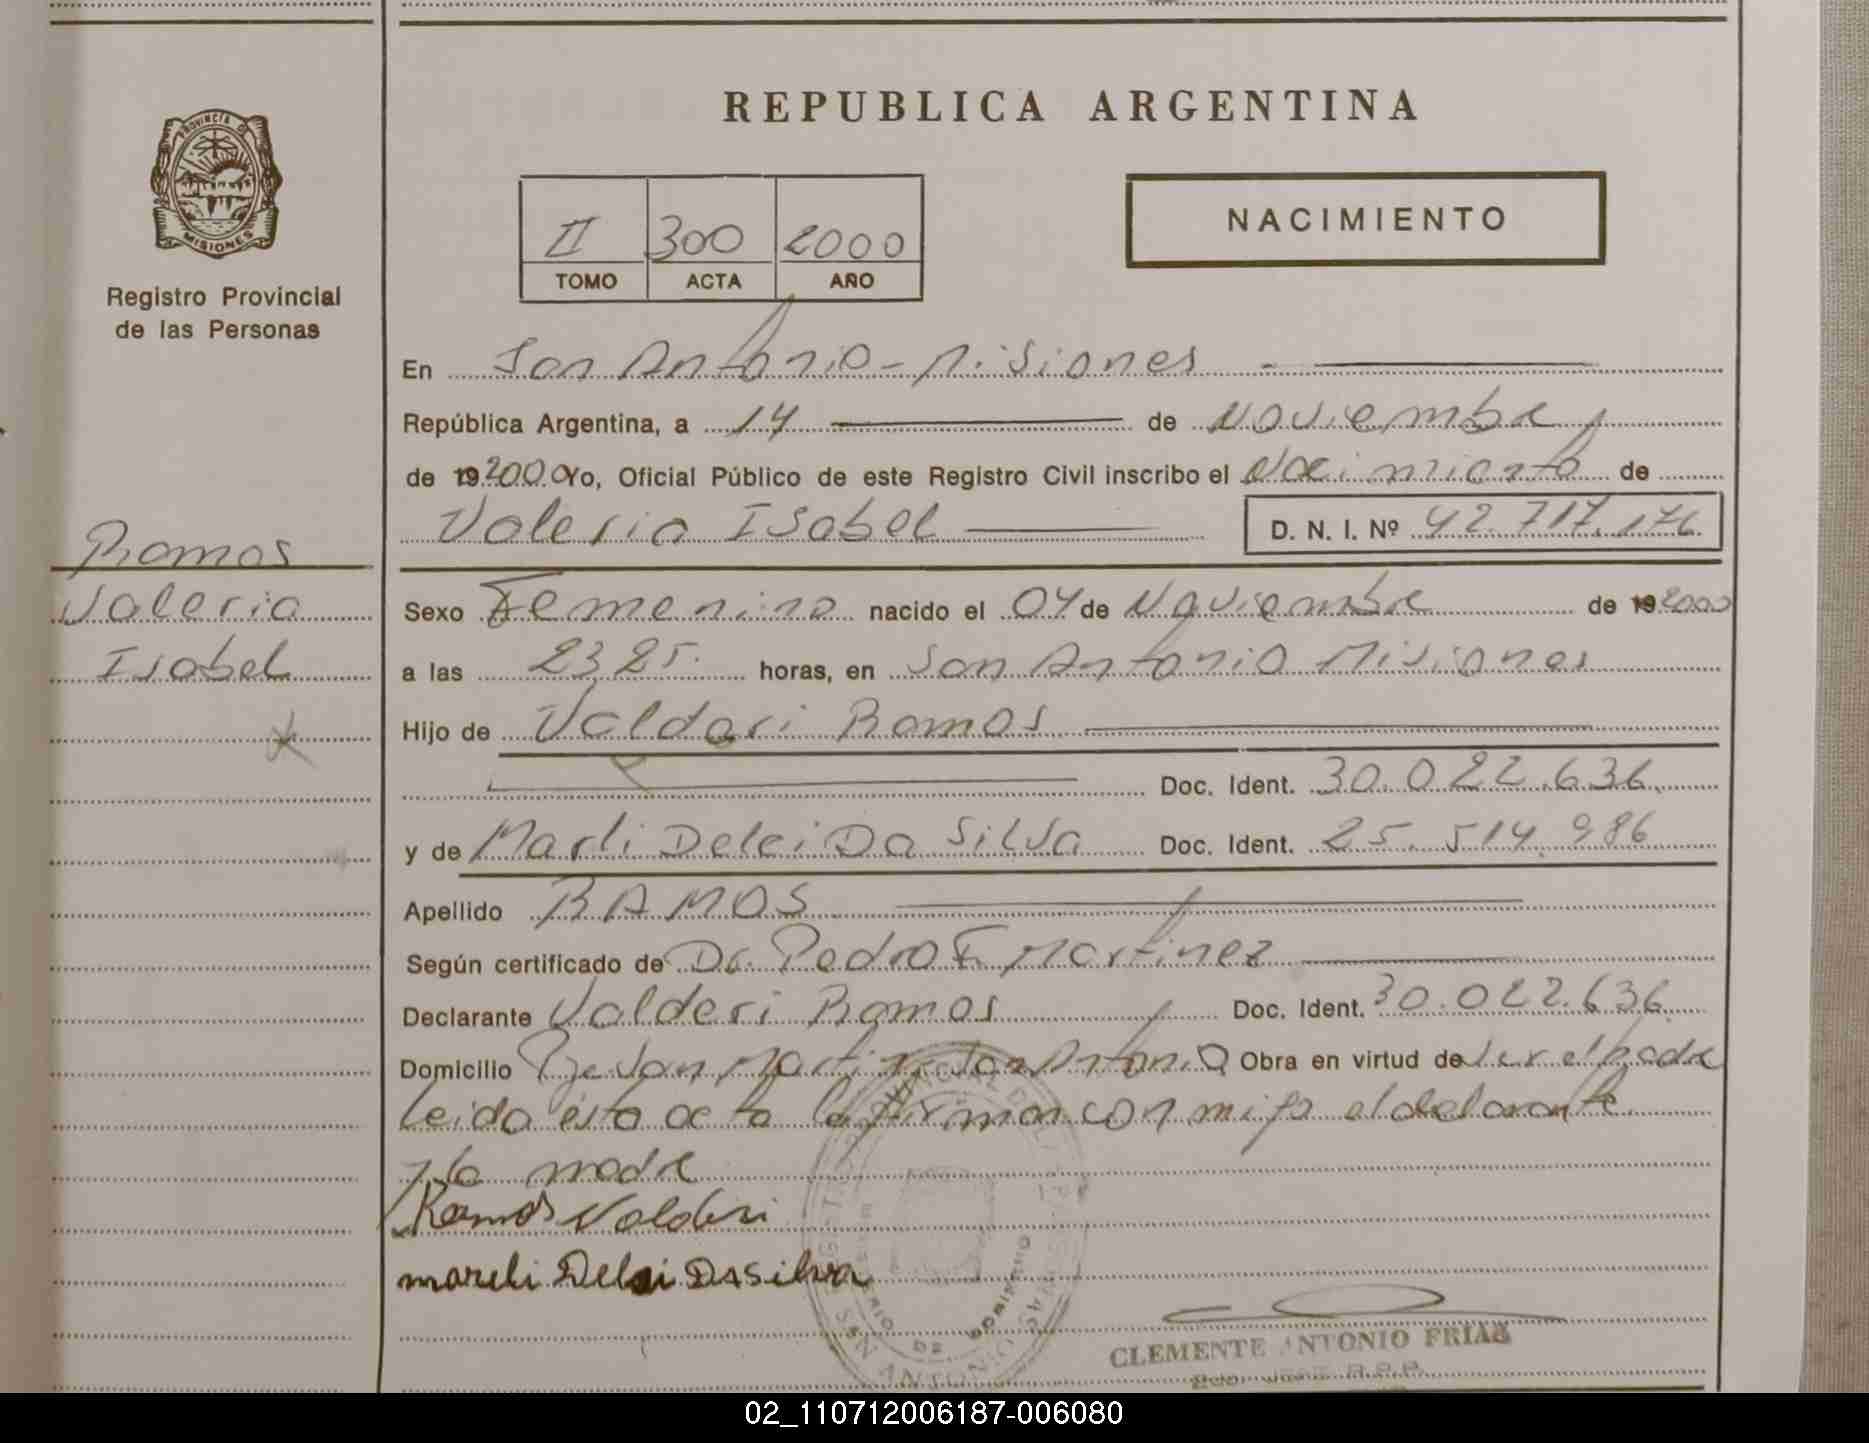 REPUBLICA ARGENTINA
PROVINCIA DE
MISIONES
Registro Provincial
de las Personas
II 300 2000
TOMO ACTA AÑO
NACIMIENTO
En San Antonio - Misiones -
República Argentina, a 14 de Noviembre
de 19 2000 Yo, Oficial Público de este Registro Civil inscribo el Nacimiento de
Valeria Isabel D. N. I. Nº 42.717.176
Ramos
Valeria
Isabel
Sexo Femenino nacido el 04 de Noviembre de 19 2000
a las 23,25. horas, en San Antonio Misiones
Hijo de Valderi Ramos
Doc. Ident. 30.022.636
y de Marli Delci Da Silva Doc. Ident. 25.514.986
Apellido RAMOS
Según certificado de Dr. Pedro F. Martinez
Declarante Valderi Ramos Doc. Ident. 30.022.636
Domicilio San Martin San Antonio Obra en virtud de ser el padre
leida esta acta la firman con migo el declarante
y la madre
Ramos Valderi
mareli Delci Dasilva
CLEMENTE ANTONIO FRIAS
SAN ANTONIO
02_110712006187-006080